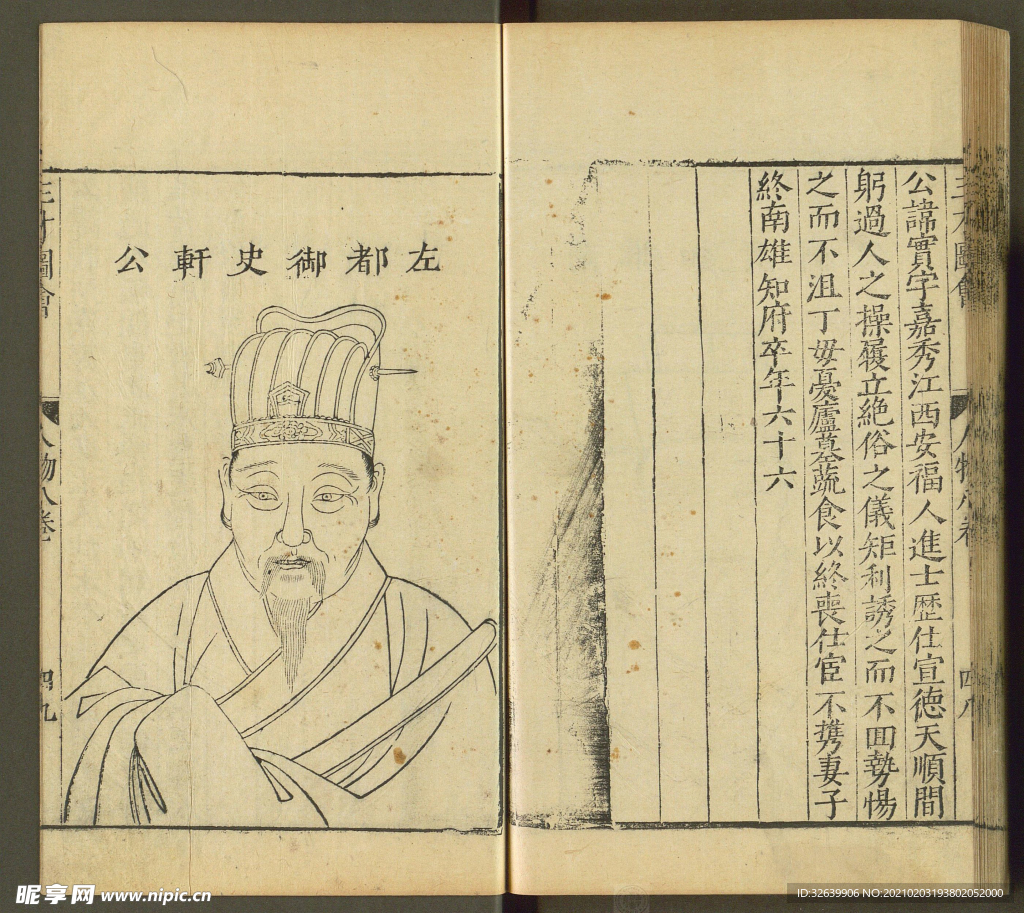 三才圖會
公諱實字嘉秀江西安福人進士歷仕宣德天順間
躬過人之操履立絶俗之儀矩利誘之而不囬勢惕
之而不沮丁毋憂廬墓蔬食以終喪仕宦不携妻子
終南雄知府卒年六十六
人物八卷
四八
左都御史軒公
三才圖會
人物八卷
四九
昵享网 www.nipic.cn
ID:32639906 NO:20210203193802052000